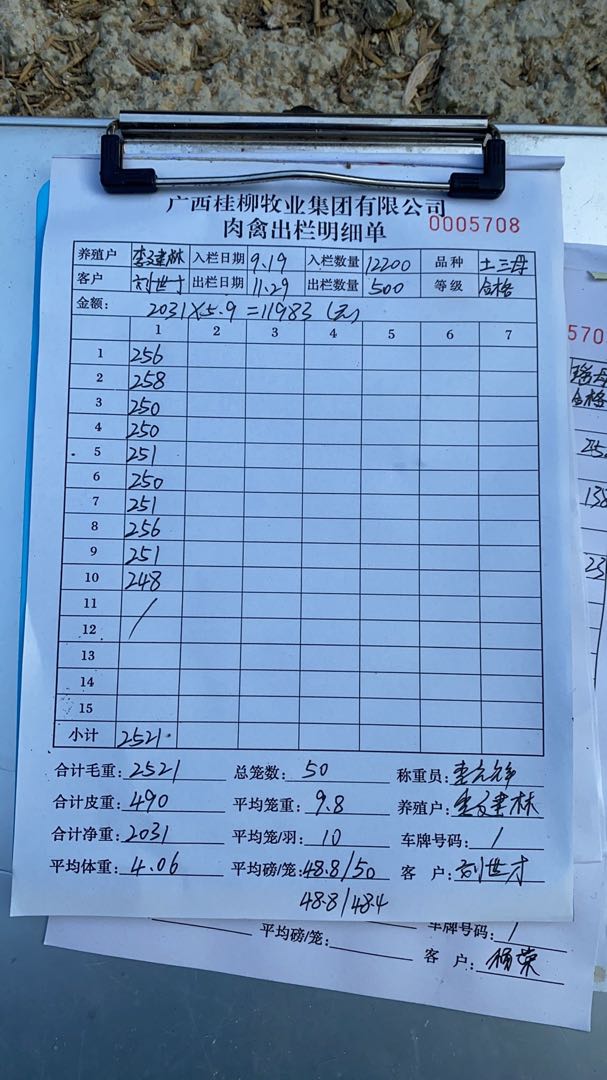 广西桂柳牧业集团有限公司
肉禽出栏明细单 0005708
养殖户 入栏日期 9.19 入栏数量 12200 品种 土三母
客户 刘世才 出栏日期 11.29 出栏数量 500 等级 合格
金额: 2031×5.9=11983(元)
1 2 3 4 5 6 7
1 256
2 258
3 250
4 250
5 251
6 250
7 251
8 256
9 251
10 248
11 /
12
13
14
15
小计 2521.
合计毛重: 2521 总笼数: 50 称重员:
合计皮重: 490 平均笼重: 9.8 养殖户:
合计净重: 2031 平均笼/羽: 10 车牌号码: /
平均体重: 4.06 平均磅/笼: 48.8/50 客 户: 刘世才
48.8/48.4
车牌号码: /
平均磅/笼:
客 户: 杨荣
570
合格
138